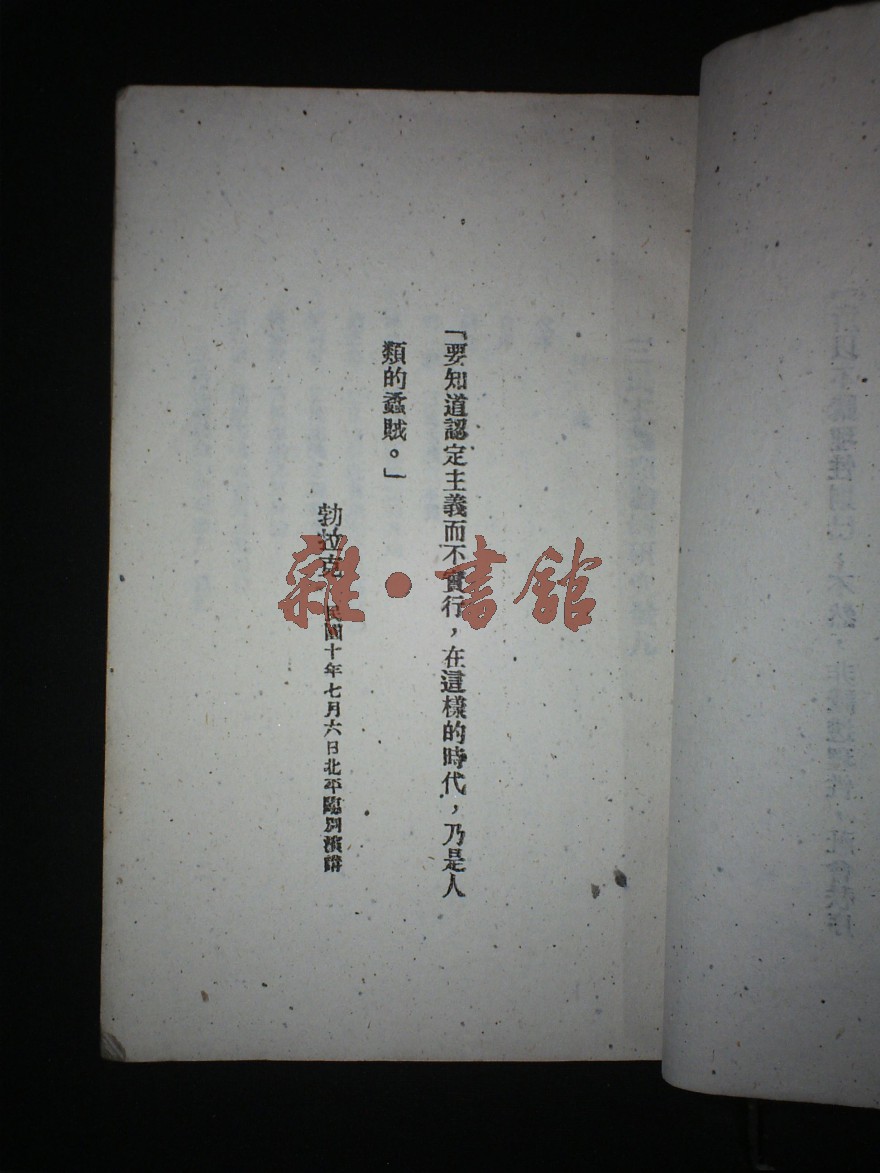 「要知道認定主義而不實行，在這樣的時代，乃是人
類的蟊賊。」
勃拉克　民國十年七月六日北平臨別演講
雜·書館